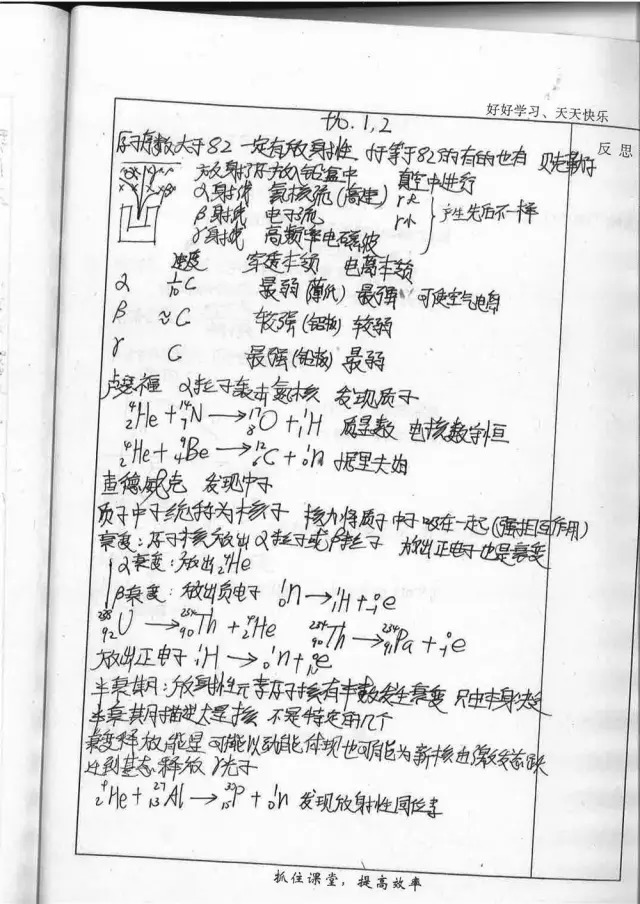 好好学习、天天快乐
反思
P60.1,2
原子序数大于82一定有放射性 小于等于82的有的也有 贝克勒尔
放射源放入铅盒中 真空中进行
α射线 氦核流(高速) r大
β射线 电子流 r小 产生先后不一样
γ射线 高频率电磁波
速度 穿透本领 电离本领
α 1/10 C 最弱(薄纸) 最强 可使空气电离
β ≈C 较强(铝板) 较弱
γ C 最强(铅板) 最弱
卢瑟福 α粒子轰击氮核 发现质子
⁴₂He + ¹⁴₇N → ¹⁷₈O + ¹₁H 质量数 电核数守恒
⁴₂He + ⁹₄Be → ¹²₆C + ¹₀n 居里夫妇
查德威克 发现中子
质子中子统称为核子 核力将质子中子吸在一起(强相互作用)
衰变:原子核放出α粒子或β粒子 放出正电子也是衰变
α衰变:放出⁴₂He
β衰变:放出负电子 ¹₀n → ¹₁H + ⁰₋₁e
²³⁸₉₂U → ²³⁴₉₀Th + ⁴₂He ²³⁴₉₀Th → ²³⁴₉₁Pa + ⁰₋₁e
放出正电子 ¹₁H → ¹₀n + ⁰₁e
半衰期:放射性元素原子核有半数发生衰变 只由本身决定
半衰期描述大量核 不是特定的几个
衰变释放能量可能以动能体现也可能为新核由激发态跃
迁到基态释放γ光子
⁴₂He + ²⁷₁₃Al → ³⁰₁₅P + ¹₀n 发现放射性同位素
抓住课堂，提高效率